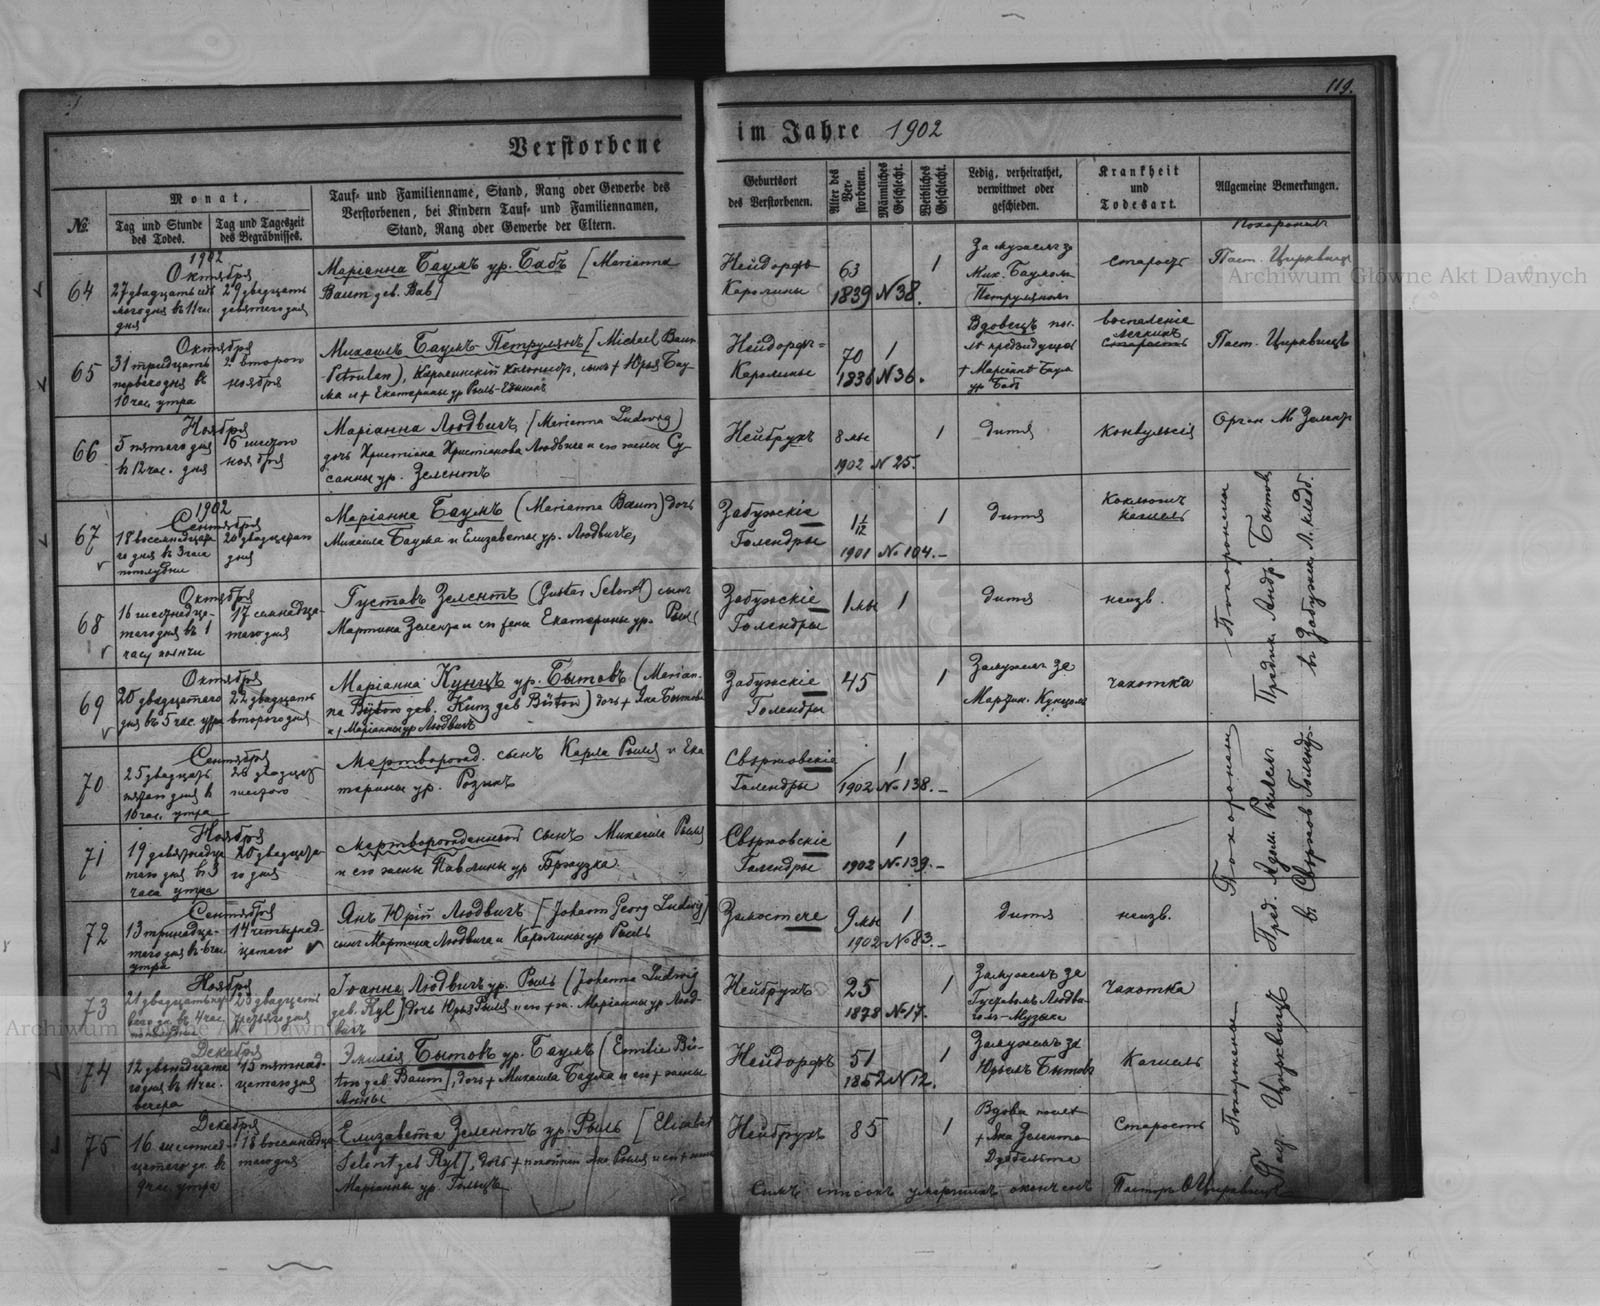 119.
Verstorbene im Jahre 1902
№
Monat,
Tag und Stunde des Todes.
Tag und Tageszeit des Begräbnisses.
Tauf- und Familienname, Stand, Rang oder Gewerbe des
Verstorbenen, bei Kindern Tauf- und Familiennamen,
Stand, Rang oder Gewerbe der Eltern.
Geburtsort
des Verstorbenen.
Alter des Verstorbenen.
Männliches Geschlecht.
Weibliches Geschlecht.
Ledig, verheirathet,
verwittwet oder
geschieden.
Krankheit
und
Todesart.
Allgemeine Bemerkungen.
Archiwum Główne Akt Dawnych
64
1902
Октября
29 двадцать
девятого дня
Маріанна Баумъ ур. Бабъ [Marianna
Baum geb. Bab]
Нейдорфъ
Каролины
63
1839 №38.
1
За мужемъ за
Мих. Баумом
Петруляном
старость
Похоронилъ
Паст. Цирквицъ
65
Октября
31 тридцать
перваго дня въ
10 час. утра
2 второго
ноября
Михаилъ Баумъ-Петрулянъ [Michael Baum
Petrulan), Каролинскій колонистъ, сынъ + Юрья Бау-
ма и + Екатерины ур Рыль-
Нейдорфъ=
Каролины
70
1
1836 №36.
Вдовецъ пос-
лѣ предыдущей
+ Маріанны Баум
ур. Баб
воспаленіе
легкихъ
Паст. Цирквицъ
66
Ноября
5 пятого дня
въ 12 час. дня
6 шестого
ноября
Маріанна Людвигъ, [Marianna Ludwig)
дочь Христіана Христіанова Людвига и его жены Су-
санны ур. Зелентъ
Нейбрухъ
8 мы
1
1902 №25.
дитя
конвульсія
Орган М. Зелентъ
67
1902
Сентября
18 восемнадца
го дня въ 3 часа
пополудни
20 двадцатого
дня
Маріанна Баумъ (Marianna Baum) дочь
Михаила Баума и Елизаветы ур. Людвигъ,
Забужскіе
Голендры
1 1/12
1
1901 №104.–
дитя
Коклюшъ
кашель
68
Октября
16 шестнадца-
того дня въ 1
часу ночи
17 семнадца-
того дня
Густавъ Зелентъ (Gustav Selent) сынъ
Мартина Зелента и его жены Екатерины ур. Рыль
Забужскіе
Голендры
1 мы
1
дитя
неизв.
69
Октября
20 двадцатого
дня въ 5 час. утра
22 двадцать
второго дня
Маріанна Кунцъ ур. Бытовъ (Marian-
na Büton geb. Kunz geb Büton) дочь + Яна Бытова
и + Маріанны ур Людвигъ
Забужскіе
Голендры
45
1
Замужемъ за
Март. Кунцомъ
чахотка
Похоронилъ
Предик. Андр. Бытовъ
въ Забужск. Г. кладб.
70
Сентября
25 двадцать
пятого дня въ
10 час. утра
26 двадцать
шестого
Мертворожд. сынъ Карла Рыля и Ека
терины ур. Розикъ
Свержовскіе
Голендры
1
1902 №138.–
71
Ноября
19 девятнадца
того дня въ 3
часа утра
20 двадцата-
го дня
Мертворожденный сынъ Михаила Рыля
и его жены Павлины ур Бржузка
Свержовскіе
Голендры
1
1902 №139.–
72
Сентября
13 тринадца-
того дня въ 6 час.
утра
14 четырнад-
цатаго
Янъ Юрій Людвигъ [Johann Georg Ludwig)
сынъ Мартина Людвига и Каролины ур Рыль
Замостече
9 мы
1
1902 №83.–
дитя
неизв.
Похоронилъ
Пред. Адам. Рылемъ
въ Свержов Голенд.
73
Ноября
21 двадцать пер
ваго дн. въ 4 час
пополудни
23 двадцать
третьяго дня
Іоанна Людвигъ ур. Рыль (Johanna Ludwig
geb. Ryl) дочь Юрья Рыля и его жен. Маріанны ур Люд-
вигъ
Нейбрухъ
25
1
1878 №17.
Замужемъ за
Густавомъ Людви-
гомъ-Музыка
Чахотка
74
Декабря
12 двѣнадцата
годня въ 11 час.
вечера
15 пятнад-
цатого дня
Эмилія Бытовъ ур. Баумъ (Emilie Bü-
ton geb Baum], дочь + Михаила Баума и его + жены
Анны
Нейдорфъ
51
1
1852 №12.
Замужемъ за
Юрьемъ Бытовъ
Кашель
75
Декабря
16 шестнад-
цатого дн. въ
9 час. утра
18 восемнадца
того дня
Елизавета Зелентъ ур. Рыль [Elisabet
Selent geb Ryl], дочь + покойнаго Яна Рыля и его + жены
Маріанны ур. Гольцъ
Нейбрухъ
85
1
Вдова послѣ
+ Яна Зелента
Старость
Похоронены
Паст. Цирквицъ
Симъ списокъ умершихъ оконченъ Пасторъ О Цирквицъ
Archiwum Główne Akt Dawnych